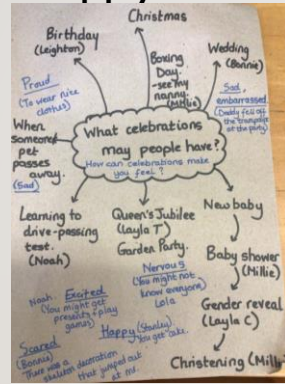 Christmas
Birthday
(Leighton)
Boxing
Day.
-see my
nanny.
(Millie)
Wedding
(Bonnie)
Proud
(To wear nice
clothes)
Sad,
embarrassed.
(Daddy fell off
the trampoline
at the party)
When
someone
pet
passes
away.
(Sad)
What celebrations
may people have?
How can celebrations make
you feel?
Learning to
drive-passing
test.
(Noah)
Queen's Jubilee
(Layla T)
Garden Party.
New baby
Baby shower
(Millie)
Gender reveal
(Layla C)
Christening (Milli
Nervous
(You might not
know everyone)
Lola
Noah. Excited
(You might get
presents & play
games)
Happy (Stanley)
You get cake.
Scared
(Bonnie)
There was a
skeleton decoration
that jumped out
at me.